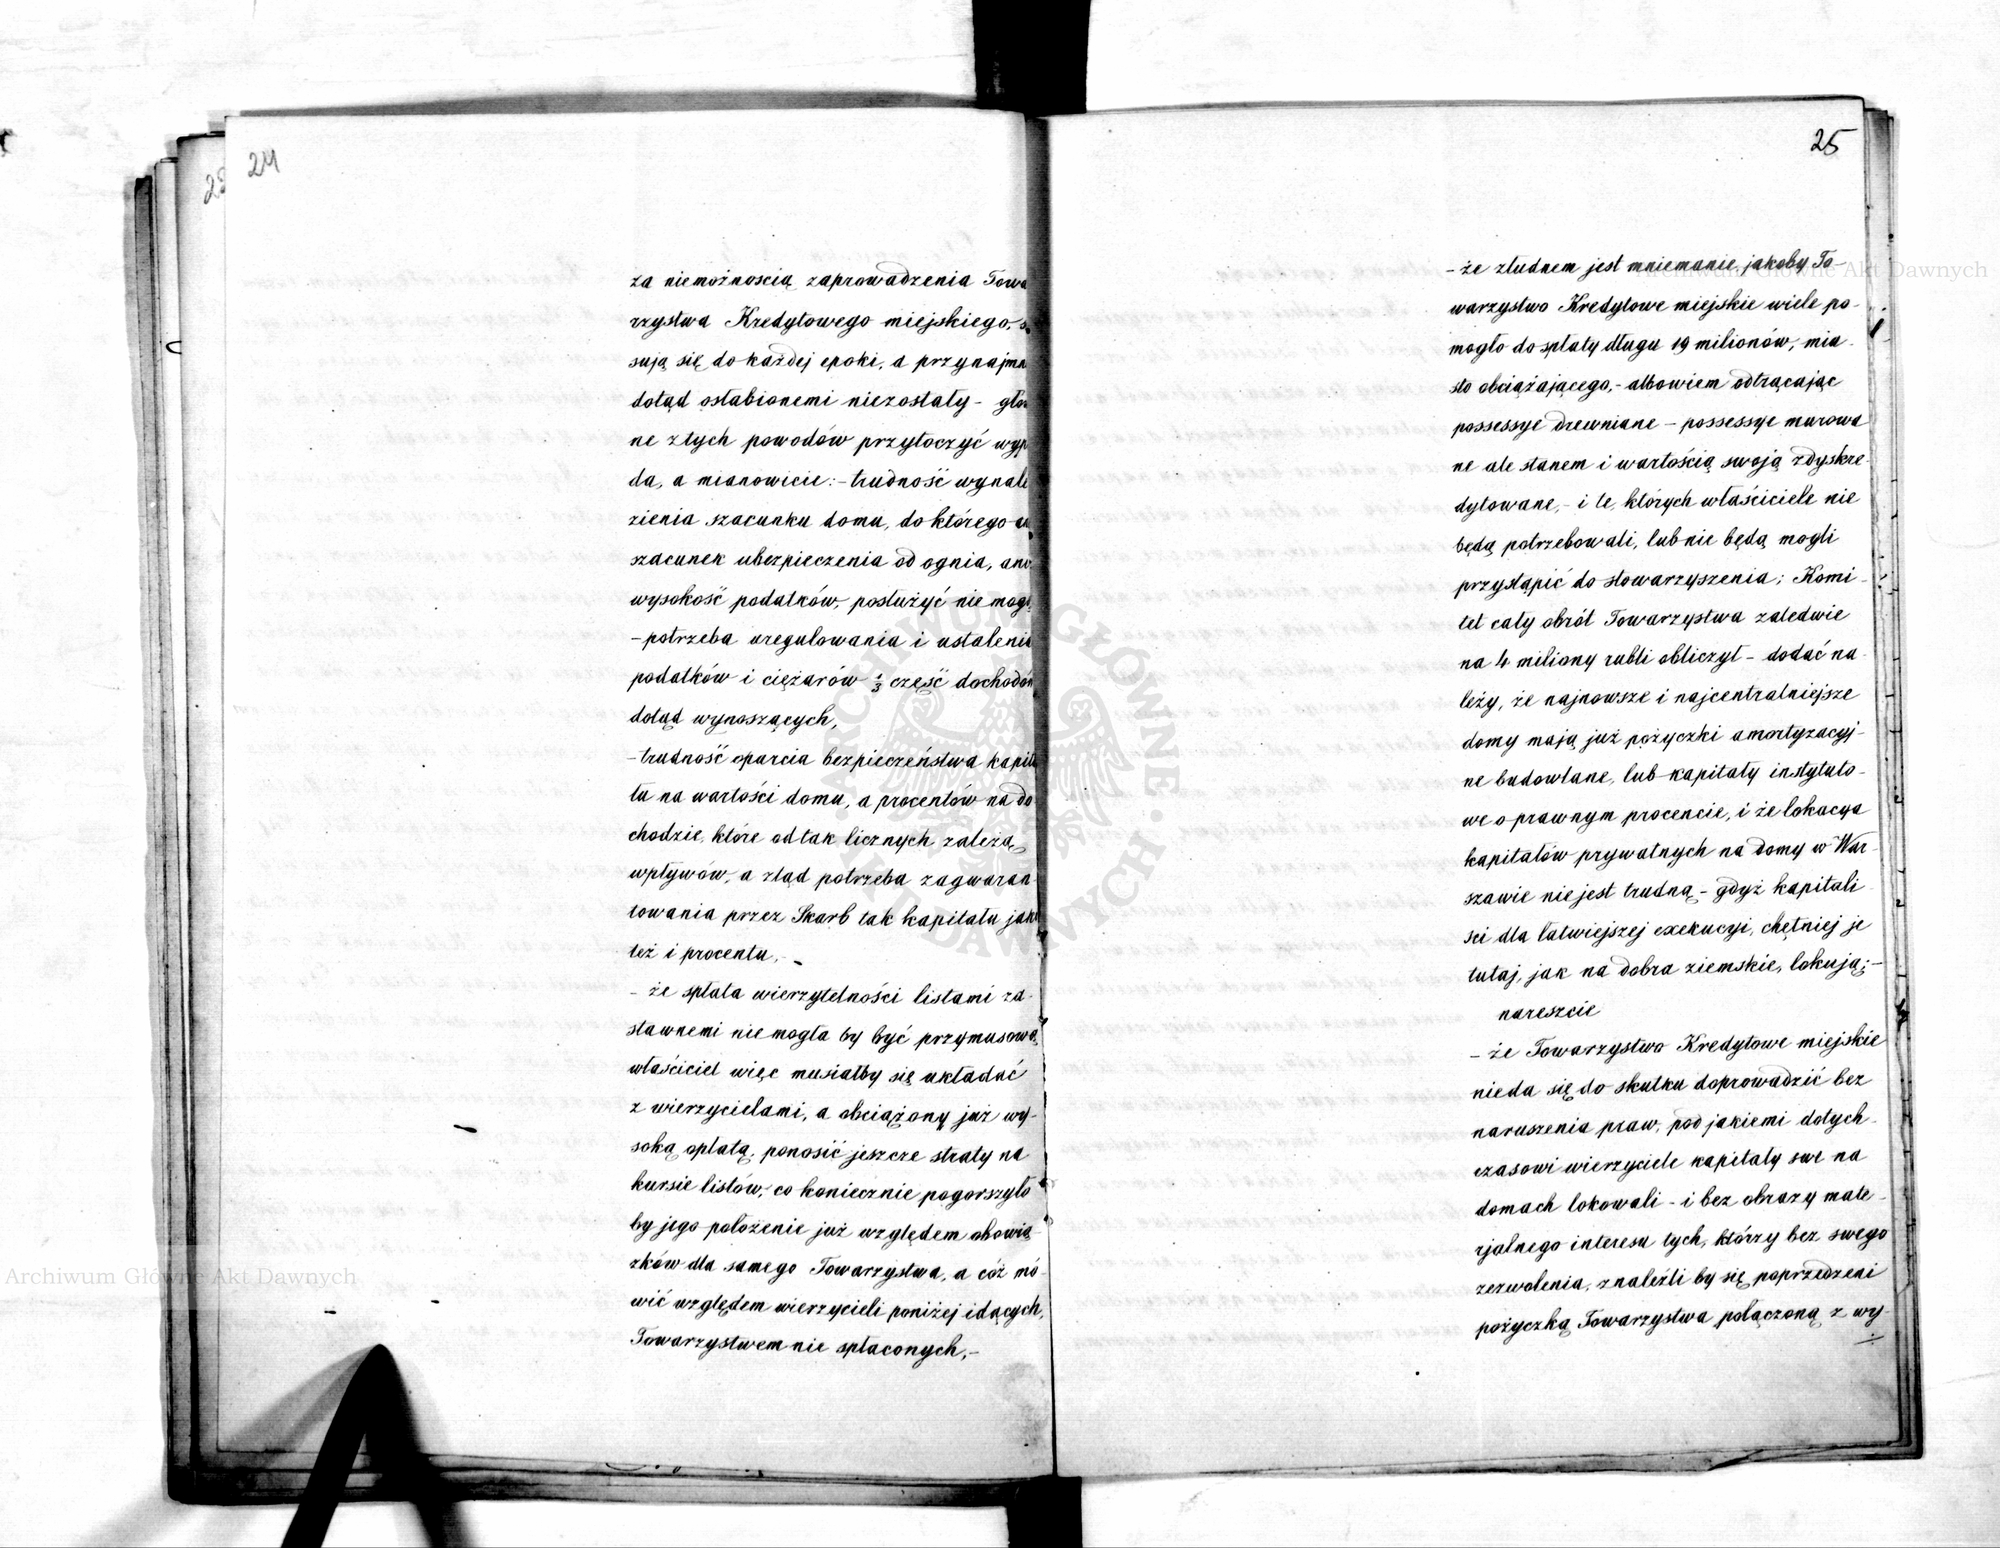 24
25
za niemożnoscią zaprowadzenia Towa
rzystwa Kredytowego miejskiego, s
sują się do każdej epoki, a przynajmn
dotąd osłabionemi niezostały - głów
ne z tych powodów przytoczyć wyp
da, a mianowicie: - trudność wynale
zienia szacunku domu, do którego a
szacunek ubezpieczenia od ognia, ani
wysokość podatków, posłużyć nie mogą
- potrzeba uregulowania i ustalenia
podatków i ciężarów 1/3 część dochodów
dotąd wynoszących,
- trudność oparcia bezpieczeństwa kapita
łu na wartości domu, a procentów na do
chodzie, które od tak licznych zależą
wpływów, a ztąd potrzeba zagwaran
towania przez Skarb tak kapitału jako
też i procentu, -
- że spłata wierzytelności listami za-
stawnemi nie mogła by być przymusową
właściciel więc musiałby się układać
z wierzycielami, a obciążony już wy-
soką opłatą, ponosić jeszcze straty na
kursie listów, co koniecznie pogorszyło
by jego położenie już względem obowią
zków dla samego Towarzystwa, a cóż mó-
wić względem wierzycieli poniżej idących,
Towarzystwem nie spłaconych, -
- że złudnem jest mniemanie jakoby To-
warzystwo Kredytowe miejskie wiele po-
mogło do spłaty długu 19 milionów, mia-
sto obciążającego, - albowiem odtrącając
possessye drewniane - possessye murowa
ne ale stanem i wartością swoją zdyskre-
dytowane, - i te, których właściciele nie
będą potrzebowali, lub nie będą mogli
przystąpić do stowarzyszenia; Komi-
tet cały obrót Towarzystwa zaledwie
na 4 miliony rubli obliczył - dodać na-
leży, że najnowsze i najcentralniejsze
domy mają już pożyczki amortyzacyj-
ne budowlane, lub kapitały instytuto-
we o prawnym procencie, i że lokacya
kapitałów prywatnych na domy w War-
szawie nie jest trudną - gdyż kapitali
ści dla łatwiejszej exekucyi, chętniej je
tutaj, jak na dobra ziemskie, lokują; -
nareszcie
- że Towarzystwo Kredytowe miejskie
nieda się do skutku doprowadzić bez
naruszenia praw, pod jakiemi dotych-
czasowi wierzyciele kapitały swe na
domach lokowali - i bez obrazy mate-
rjalnego interesu tych, którzy bez swego
zezwolenia, znaleźli by się poprzedzeni
pożyczką Towarzystwa połączoną z wy-
Archiwum Główne Akt Dawnych
Archiwum Główne Akt Dawnych
ARCHIWUM GŁÓWNE AKT DAWNYCH